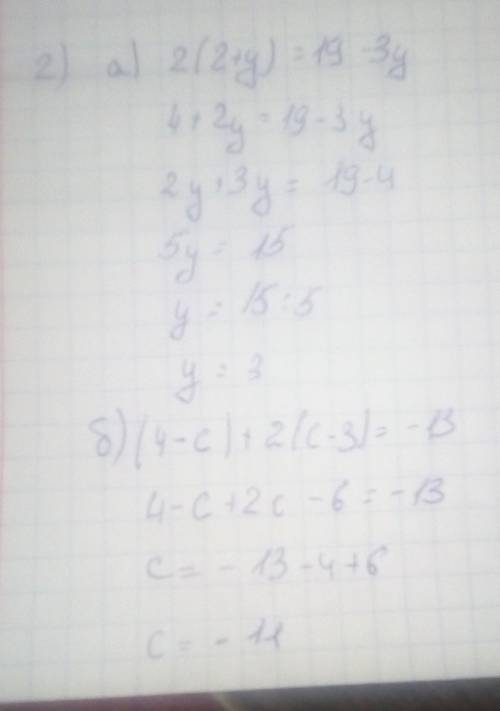 2) а) 2(2+y) = 19 - 3y
4 + 2y = 19 - 3y
2y + 3y = 19 - 4
5y = 15
y = 15 : 5
y = 3
б) (4 - c) + 2(c - 3) = -13
4 - c + 2c - 6 = -13
c = -13 - 4 + 6
c = -11